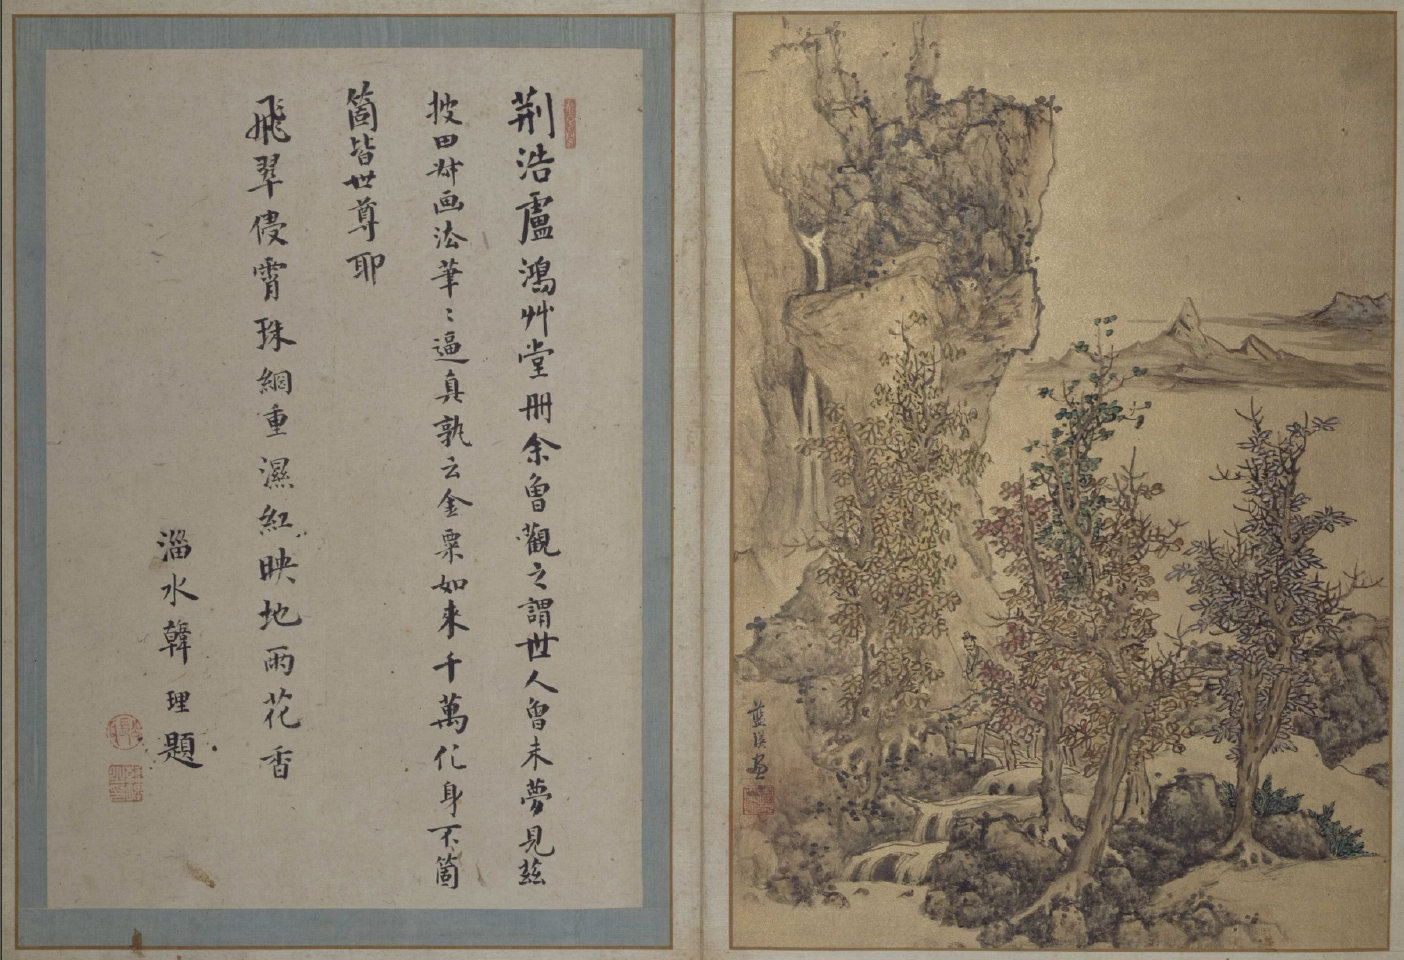 荆浩盧鴻艸堂册余曾觀之謂世人曾未夢見茲
披田叔画法筆〻逼真孰云金粟如来千萬化身不箇
箇皆世尊耶
飛翠侵霄珠網重濕紅映地雨花香
淄水韓理題
藍瑛画